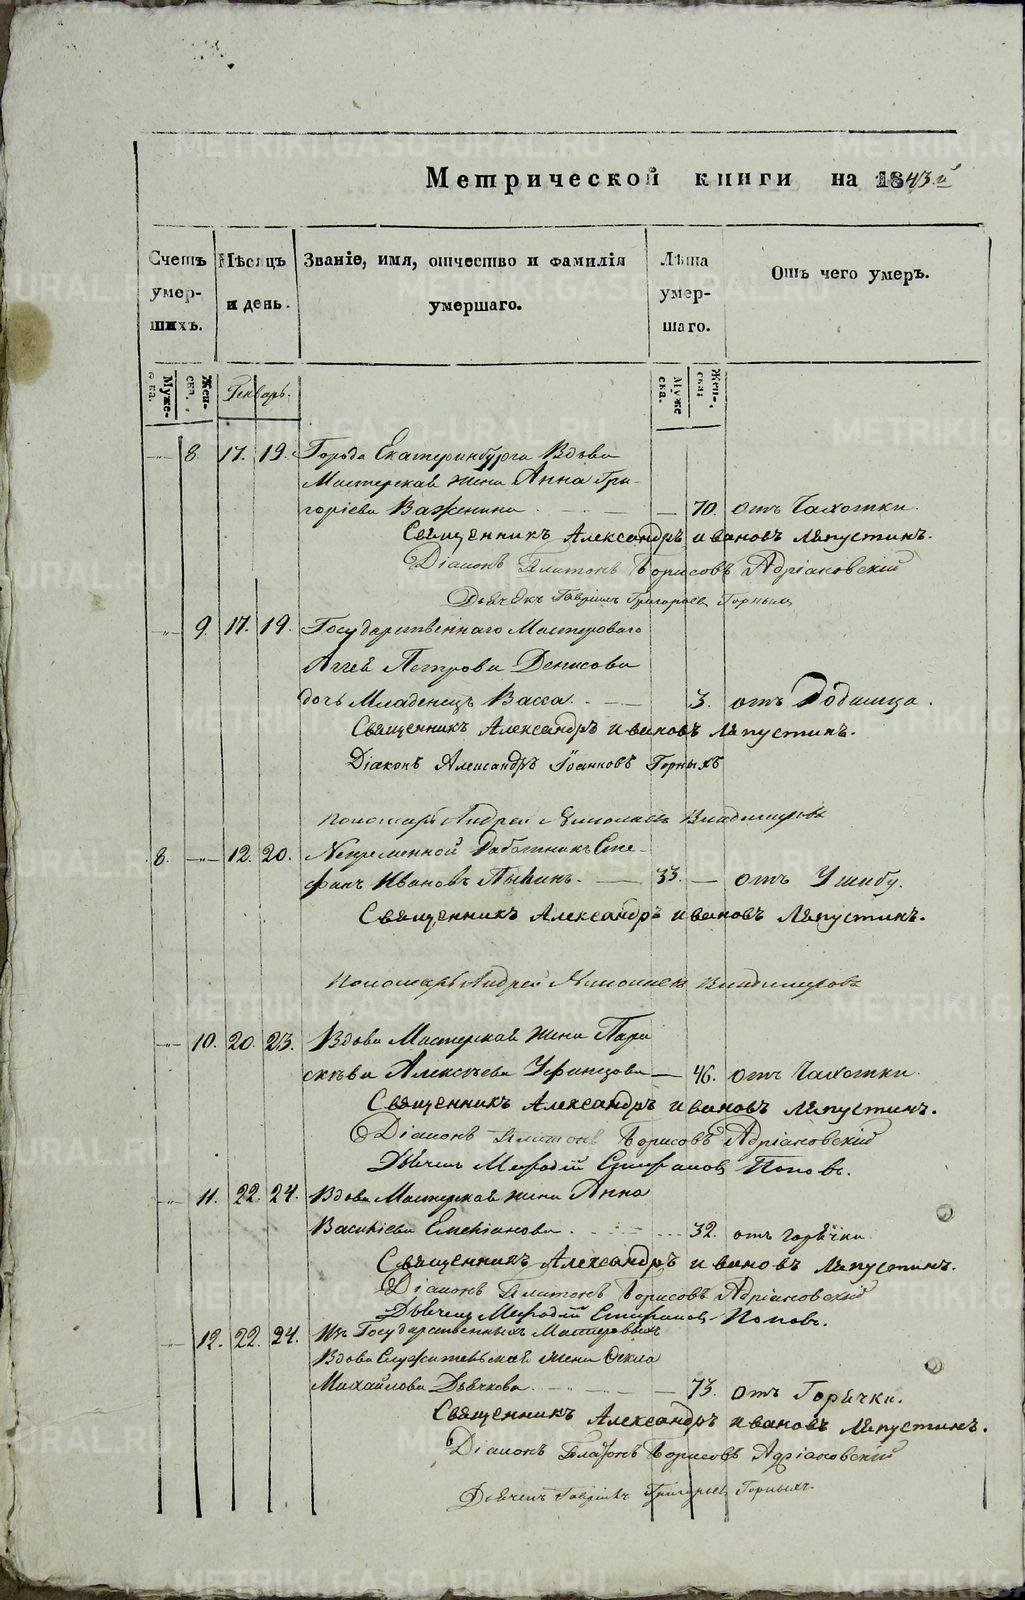 Метрической книги на 1843й
Счетъ умер- шихъ.
Мѣсяцъ и день.
Званіе, имя, отчество и фамилія умершаго.
Лѣта умер- шаго.
Отъ чего умеръ.
Муже- ска.
Жен- ска.
Генварь.
Муже ска.
Жен- ска.
8. 17. 19. Города Екатеринбурга Вдова
Мастерская жена Анна Гри-
горіева Важенина 70. отъ Чахотки.
Священникъ Александръ Ивановъ Ляпустинъ.
Діаконъ Платонъ Борисовъ Адріановскій
Дьячекъ Гавріилъ Григорьевъ Горныхъ
9. 17. 19. Государственнаго Мастероваго
Аггея Петрова Денисова
дочь Младенецъ Васса. 3. отъ Родимца.
Священникъ Александръ Ивановъ Ляпустинъ.
Діаконъ Александръ Іоанновъ Горныхъ
Пономарь Андрей Николаевъ Владимировъ
8. 12. 20. Непременной Работникъ Сте-
фанъ Ивановъ 33. отъ Ушибу.
Священникъ Александръ Ивановъ Ляпустинъ.
Пономарь Андрей Николаевъ Владимировъ
10. 20. 23. Вдова Мастерская жена Пара
скѣва Алексѣева Уфинцова 46. отъ Чахотки.
Священникъ Александръ Ивановъ Ляпустинъ.
Діаконъ Платонъ Борисовъ Адріановскій
Дьячекъ Мефодій Епифановъ Поповъ.
11. 22. 24. Вдова Мастерская жена Анна
Василіева Емеліанова. 32. отъ горячки
Священникъ Александръ Ивановъ Ляпустинъ.
Діаконъ Платонъ Борисовъ Адріановскій
Дьячекъ Мефодій Епифановъ Поповъ.
12. 22. 24. Изъ Государственныхъ Мастеровыхъ
Вдова Служительская жена Фекла
Михайлова Дьячкова. 73. отъ Горячки.
Священникъ Александръ Ивановъ Ляпустинъ.
Діаконъ Платонъ Борисовъ Адріановскій
Дьячекъ Гавріилъ Григорьевъ Горныхъ.
METRIKI.GASO-URAL.RU